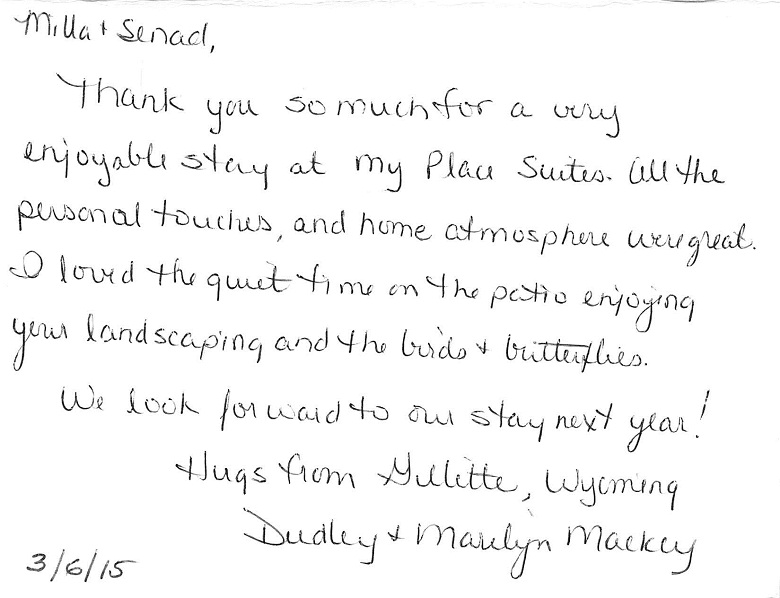 Milla + Senad,
Thank you so much for a very
enjoyable stay at My Place Suites. All the
personal touches, and home atmosphere were great.
I loved the quiet time on the patio enjoying
your landscaping and the birds + butterflies.
We look forward to our stay next year!
Hugs from Gillette, Wyoming
Dudley + Marilyn Mackey
3/6/15